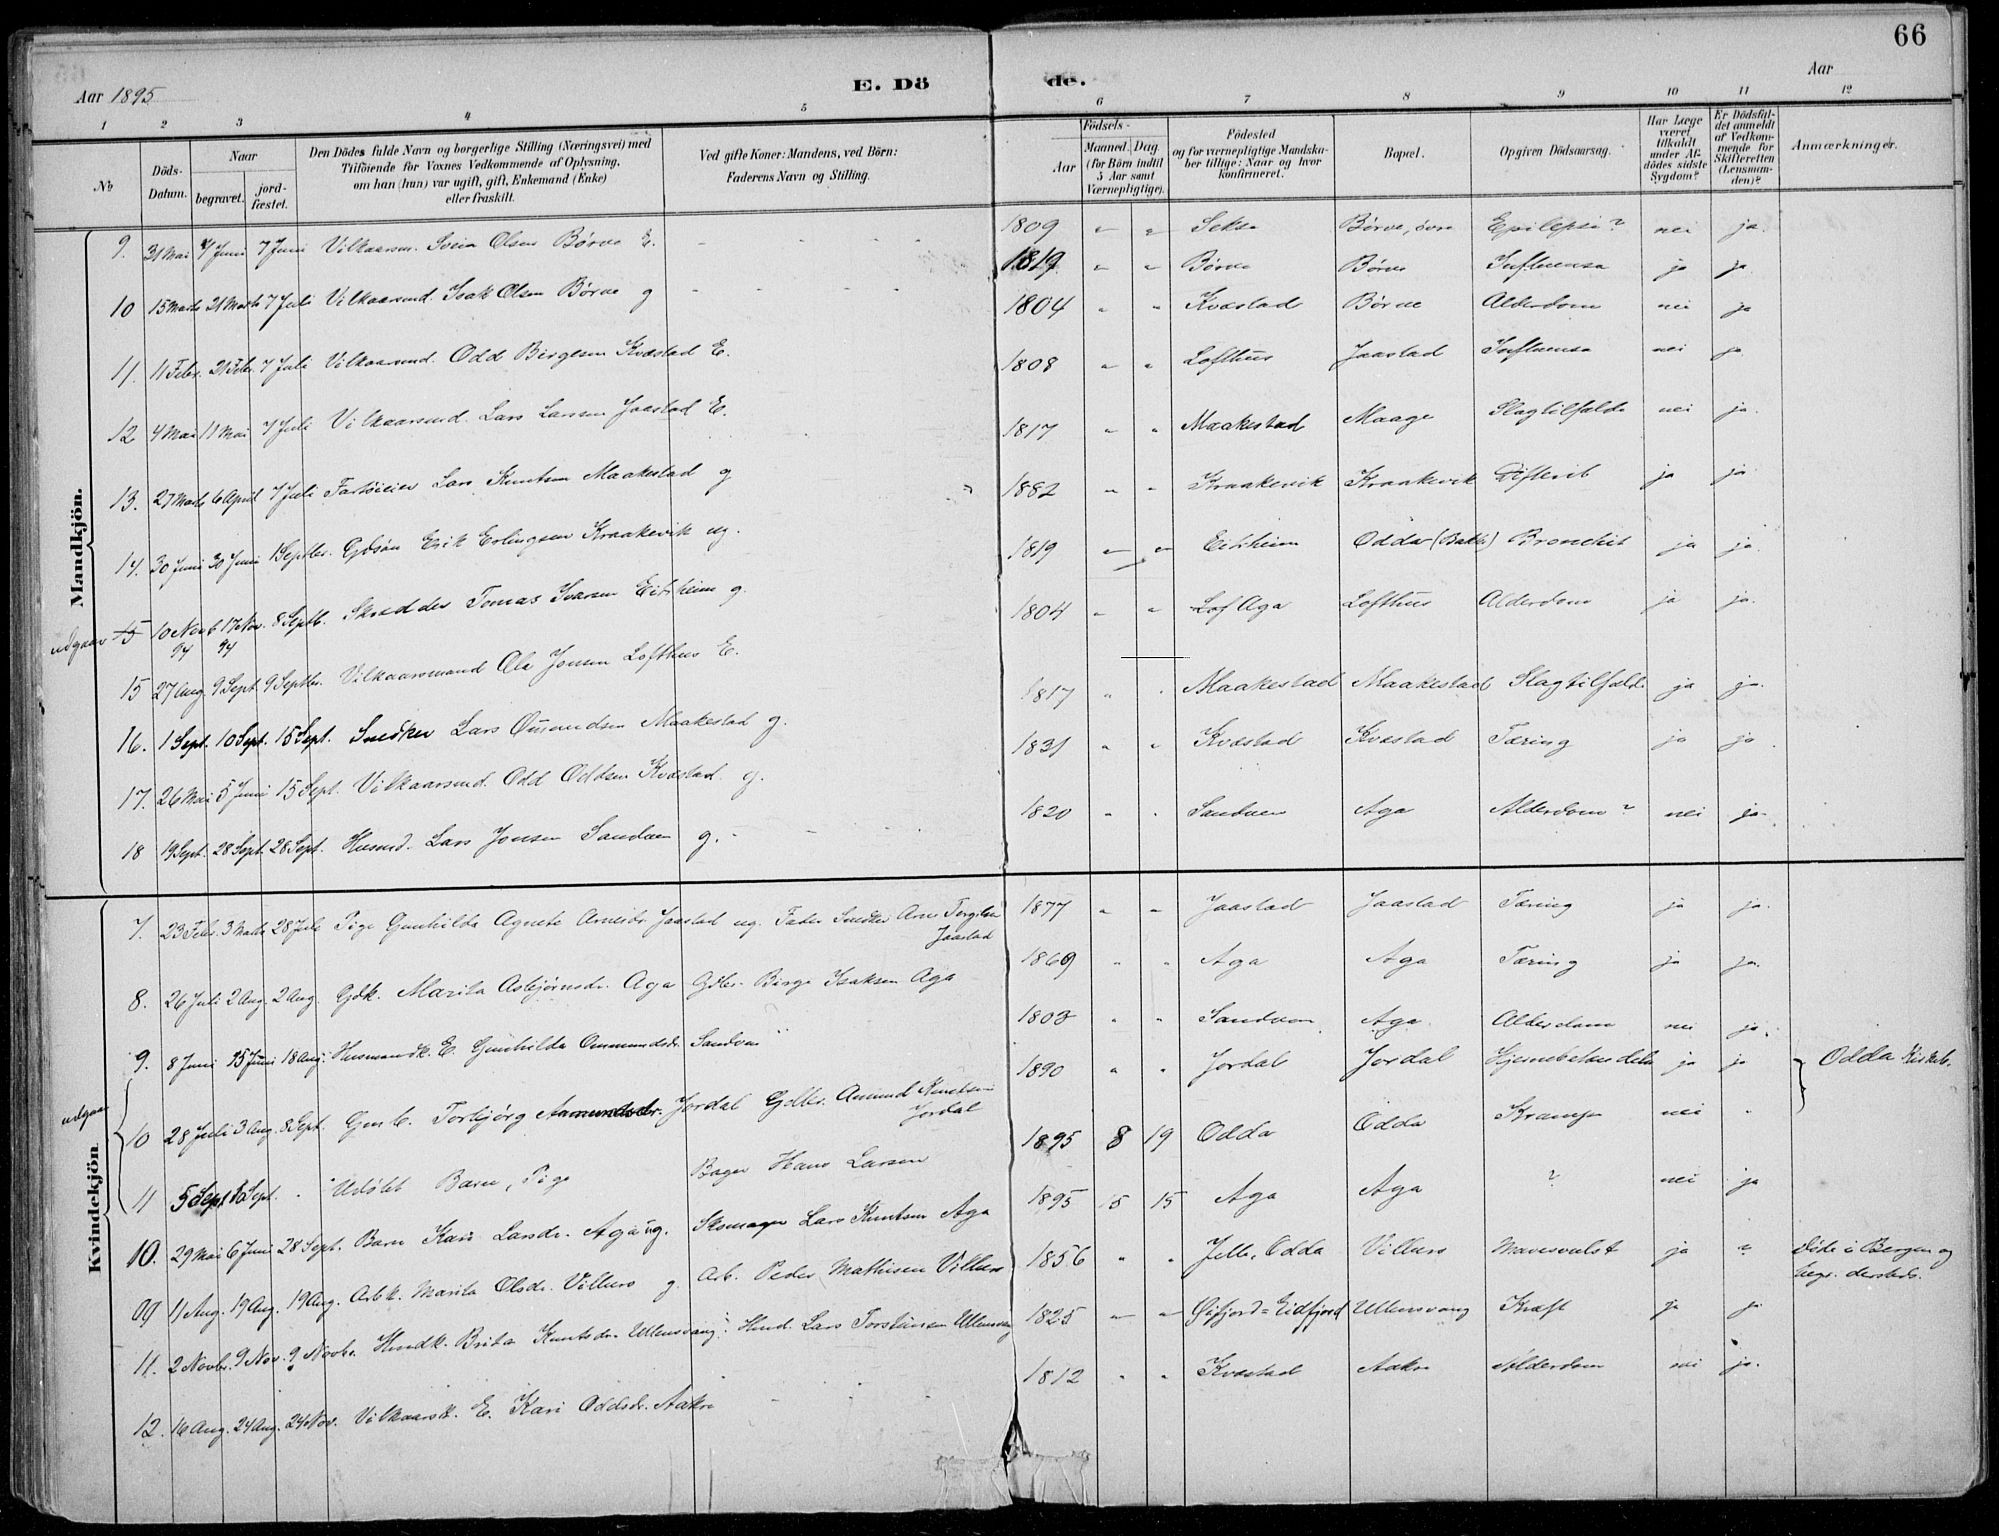 66
Aar 1895
E. Dö
de.
Aar
1 2 3 4 5 6 7 8 9 10 11 12
No
Döds-Datum.
Naar
begravet.
jord-fæstet.
Den Dödes fulde Navn og borgerlige Stilling (Næringsvei) med
Tilföiende för Voxnes Vedkommende af Oplysning,
om han (hun) var ugift, gift, Enkemand (Enke)
eller fraskilt.
Ved gifte Koner: Mandens, ved Börn:
Faderens Navn og Stilling.
Födsels-
Aar
Maaned. Dag.
(for Börn indtil
5 Aar samt
Værnepligtige).
Födested
og for værnepligtige Mandska-
ber tillige: Naar og hvor
konfirmeret.
Bopæl.
Opgiven Dödsaarsag.
Har Læge
været
tilkaldt
under Af-
dödes sidste
Sygdom?
Er Dödsfal-
det anmeldt
af Vedkom-
mende for
Skifteretten
(Lensman-
den)?
Anmærkninger.
Mandkjön.
9. 31 Mai 7 Juni 7 Juni Vilkaarsm. Svein Olsen Børve E. - - - - 1809 " " Sekse Børve, övre Epilepsi? nei ja.
10 15 Marts 21 Marts 7 Juli Vilkaarsmd. Isak Olsen Børve g - - - - 1819 " " Børve Børve Influensa ja ja
11. 11 Febr. 21 Febr. 7 Juli Vilkaarsmd. Odd Birgesen Kvæstad E. 1804 " " Kvæstad Børve Alderdom nei ja
12 4 Mai 11 Mai 7 Juli Vilkaarsmd. Lars Larsen Jaastad E. 1808 " " Lofthus Jaastad Influensa nei ja
13. 27 Marts 6 April 7 Juli Fartøieier Lars Knutsen Maakestad g 1817 " " Maakestad Maage Slagtilfælde nei ja.
14. 30 Juni 30 Juni 1 Septbr. Gdsøn Erik Erlingsen Kraakevik ug. 1882 " " Kraakevik Kraakevik Difterit ja ja
udgaar 15 10 Novb 94 17 Nov. 94 8 Septb. Skrædder Tomas Ivarsen Eitrheim g. 1819 " " Eitrheim Odda (Bakke) Bronchit ja ja.
15 27 Aug. 9 Sept. 9 Septbr. Vilkaarsmand Ola Jonsen Lofthus E. 1804 " " Lof Aga Lofthus Alderdom ja ja.
16. 1 Sept. 10 Sept. 15 Sept. Snedker Lars Omundsen Maakestad g. 1817 " " Maakestad Maakestad Slagtilfælde ja ja.
17. 26 Mai 5 Juni 15 Sept. Vilkaarsmd. Odd Oddsen Kvæstad g. 1831 " " Kvæstad Kvæstad Tæring ja ja
18 19 Sept. 28 Sept. 28 Sept. Husmd. Lars Jonsen Sandven g. - - - 1820 " " Sandven Aga Alderdom? nei ja.
Kvindekjön
7. 23 Febr. 3 Marts 28 Juli Pige Gunhilda Agnete Arnesdr. Jaastad ug. Fader Snedker Arne Torgilsen Jaastad 1877 " " Jaastad Jaastad Tæring ja ja.
8. 26 Juli 2 Aug. 2 Aug. Gdk. Marita Asbjørnsdr. Aga Gdbr. Birge Isaksen Aga 1869 " " Aga Aga Tæring ja ja.
9. 8 Juni 15 Juni 18 Aug. Husmandk. E. Gunhilda Ommundsdr. Sandven " 1803 " " Sandven Aga. Alderdom nei ja.
udgaar
10 28 Juli 3 Aug. 8 Sept. Gmb. Torbjørg Aamundsdr. Jordal Gdbr. Amund Knutsen Jordal 1890 " " Jordal Jordal Hjernebetændelse ja ja Odda Kirkeb.
11 5 Sept. Sept. " Udøbt Barn, Pige Bager Hans Larsen 1895 8 19 Odda Odda Krampe nei "
10. 29 Mai 6 Juni 28 Sept. Barn Kari Larsdr. Aga ug. Skomager Lars Knutsen Aga 1895 5 15 Aga Aga ? nei ja
11 Aug. 19 Aug. 19 Aug. Arbk. Marita Olsdr. Villurs g Arb. Peder Mathisen Villurs 1856 " " Jelle, Odda Villurs Mavesvulst ja " døde i Bergen og
begr. dersteds.
11. 2 Novbr. 9 Nov. 9 Novbr. Hmdk. Brita Knutsdr. Ullensvang Hmd. Lars Torsteinsen Ullensvang 1825 " " Øifjord = Eidfjord Ullensvang Kræft ja ja
12. 16 Aug. 24 Aug. 24 Nov. Vilkaarsk. E. Kari Oddsdr. Aakre - - - 1812 " " Kvæstad Aakre Alderdom nei ja.